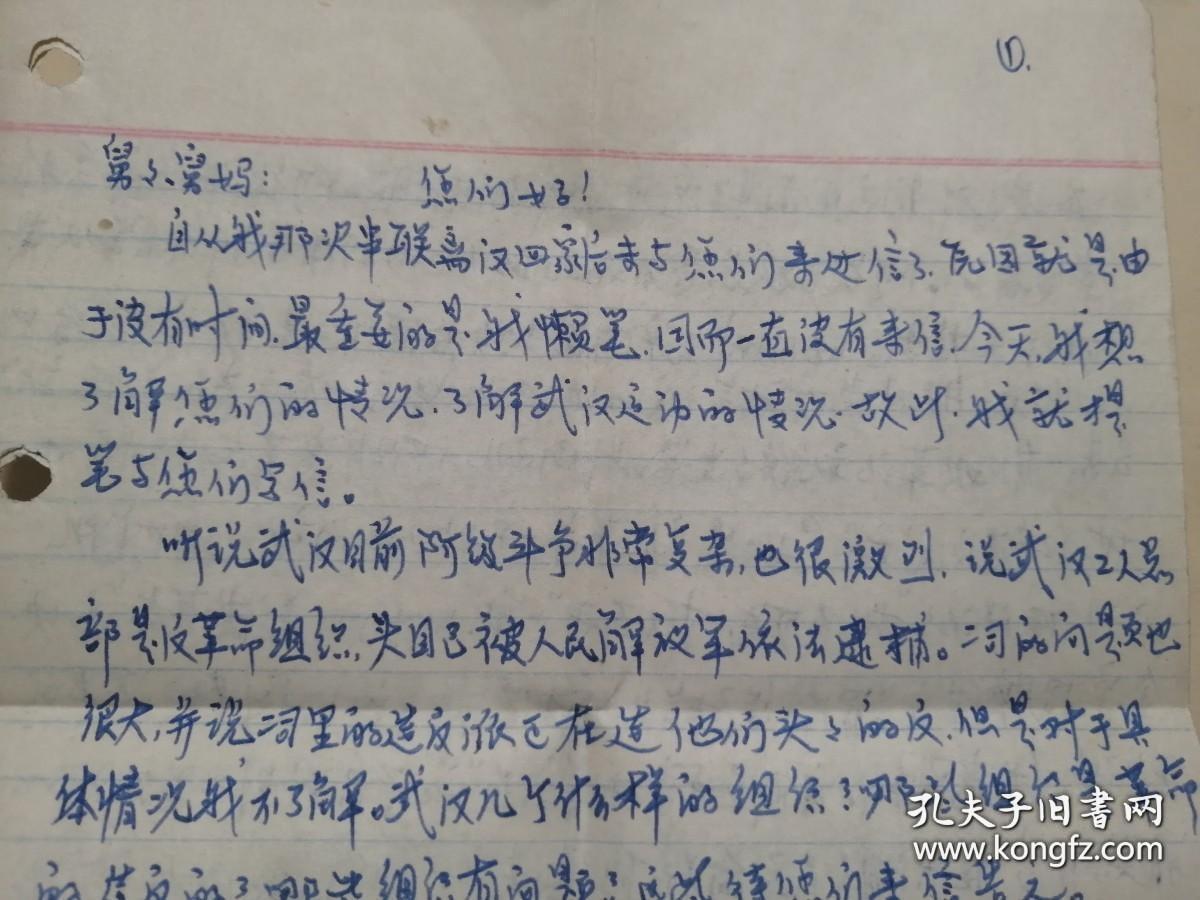 ①.
舅々、舅妈：
您们好！
自从我那次串联离汉回家后未与您们来过信了。原因就是由
于没有时间、最重要的是我懒笔、因而一直没有来信。今天，我想
了解您们的情况、了解武汉运动的情况。故此、我就提
笔与您们写信。
听说武汉目前阶级斗争非常复杂，也很激烈。说武汉工人总
部是反革命组织，头目已被人民解放军依法逮捕。二司的问题也
很大，并说二司里的造反派正在造他们头々的反、但是对于具
体情况我不了解。武汉几个什么样的组织？哪些组织是革命
的 哪些组织有问题？ 您们来信
孔夫子旧书网
www.kongfz.com